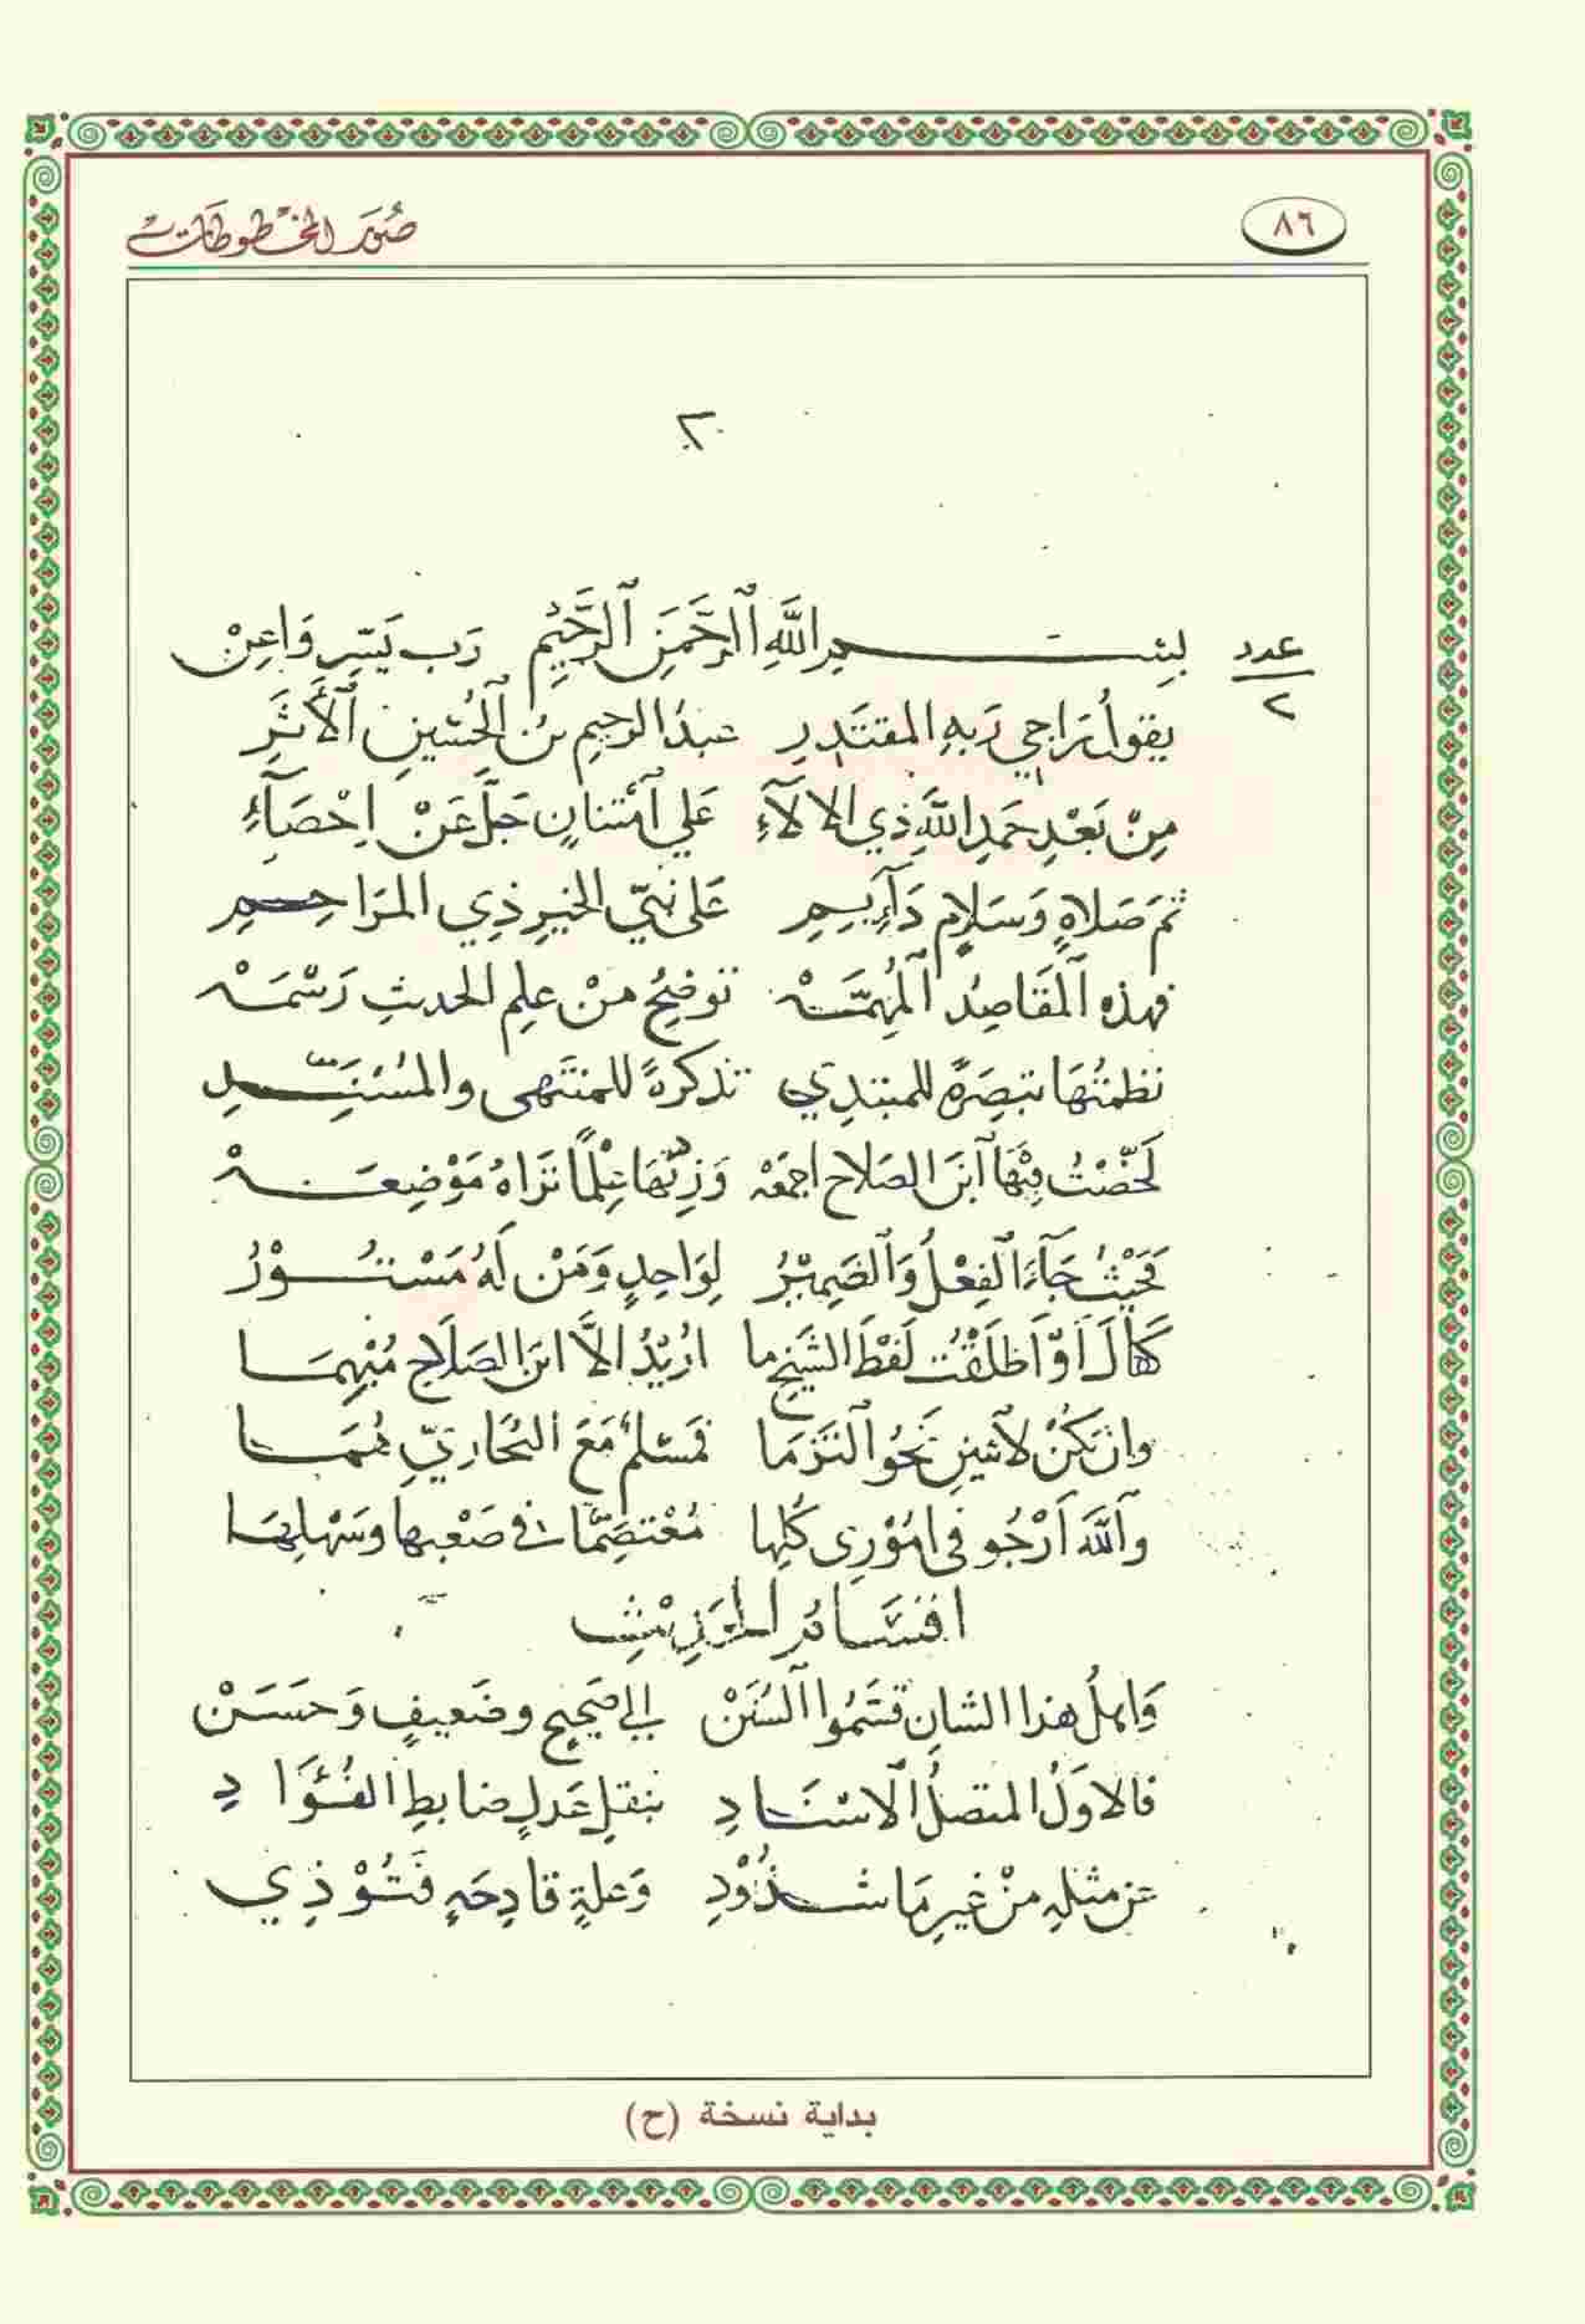 ٨٦
صُوَر المخْطوطَات
٢
عدد
٢
بِسْمِ اللَّهِ الرَّحْمَنِ الرَّحِيْمِ رَب يَسِّرِ وَاعِنْ
يقولُ رَاجِي رَبهِ المقتَدِرِ عبدُ الرحيمِ بنُ الحُسَينِ الأَثَرِي
مِنْ بَعْدِ حَمدِ اللَّهِ ذي الالَآءِ عَلي امْتنانٍ جَلَّ عَنْ اِحْصَآءِ
ثمَ صَلاةٍ وَسَلامٍ دَآيِمِ عَلى نبيّ الخيرِ ذِي المرَاحِمِ
فهذه المَقَاصِدُ المُهِمَّهْ توضِحُ منْ علمِ الحديثِ رَسْمَهْ
نظمتُهَا تبصِرَةً للمبتدِي تذكرةً للمنتَهى والمُسْنِدِ
لَخّصْتُ فِيْهَا ابنَ الصَلاح اجمَعْه وَزِدْتُهَا عِلْمًا تَرَاهُ مَوْضِعَهْ
فَحَيْثُ جَآءَ الفِعْلُ وَالضَمِيْرُ لِوَاحِدٍ وَمَنْ لَهُ مَسْتُوْرُ
كَقالَ اَوْ اَطلَقْتُ لَفْظَ الشَيْخِ ما اُرِيْدُ الاَّ ابنَ الصَلَاحِ مُبْهِمَا
وان يَكُنْ لاثنينِ نَحْوُ التَزَمَا فمَسْلمٌ مَعَ البُخَارِيّ هُمَا
واَللَّهَ اَرْجُو في اُمُوْرِي كُلِها مُعْتصِمًا في صَعْبِها وسَهْلِهَا
اقسَامُ الحَدِيْثِ
وَاهلُ هذا الشانِ قسَمُوا السُنَنْ الي صَحِيحٍ وضَعيفٍ وَحَسَنْ
فالاوَلُ المتصلُ الاسْنَادِ بنقلِ عَدلٍ ضابطِ الفُؤَادِ
عن مثلهِ منْ غيرِ مَا شُذُوْدِ وَعلةٍ قادِحَهٍ فَتُوْذِي
بداية نسخة (ح)